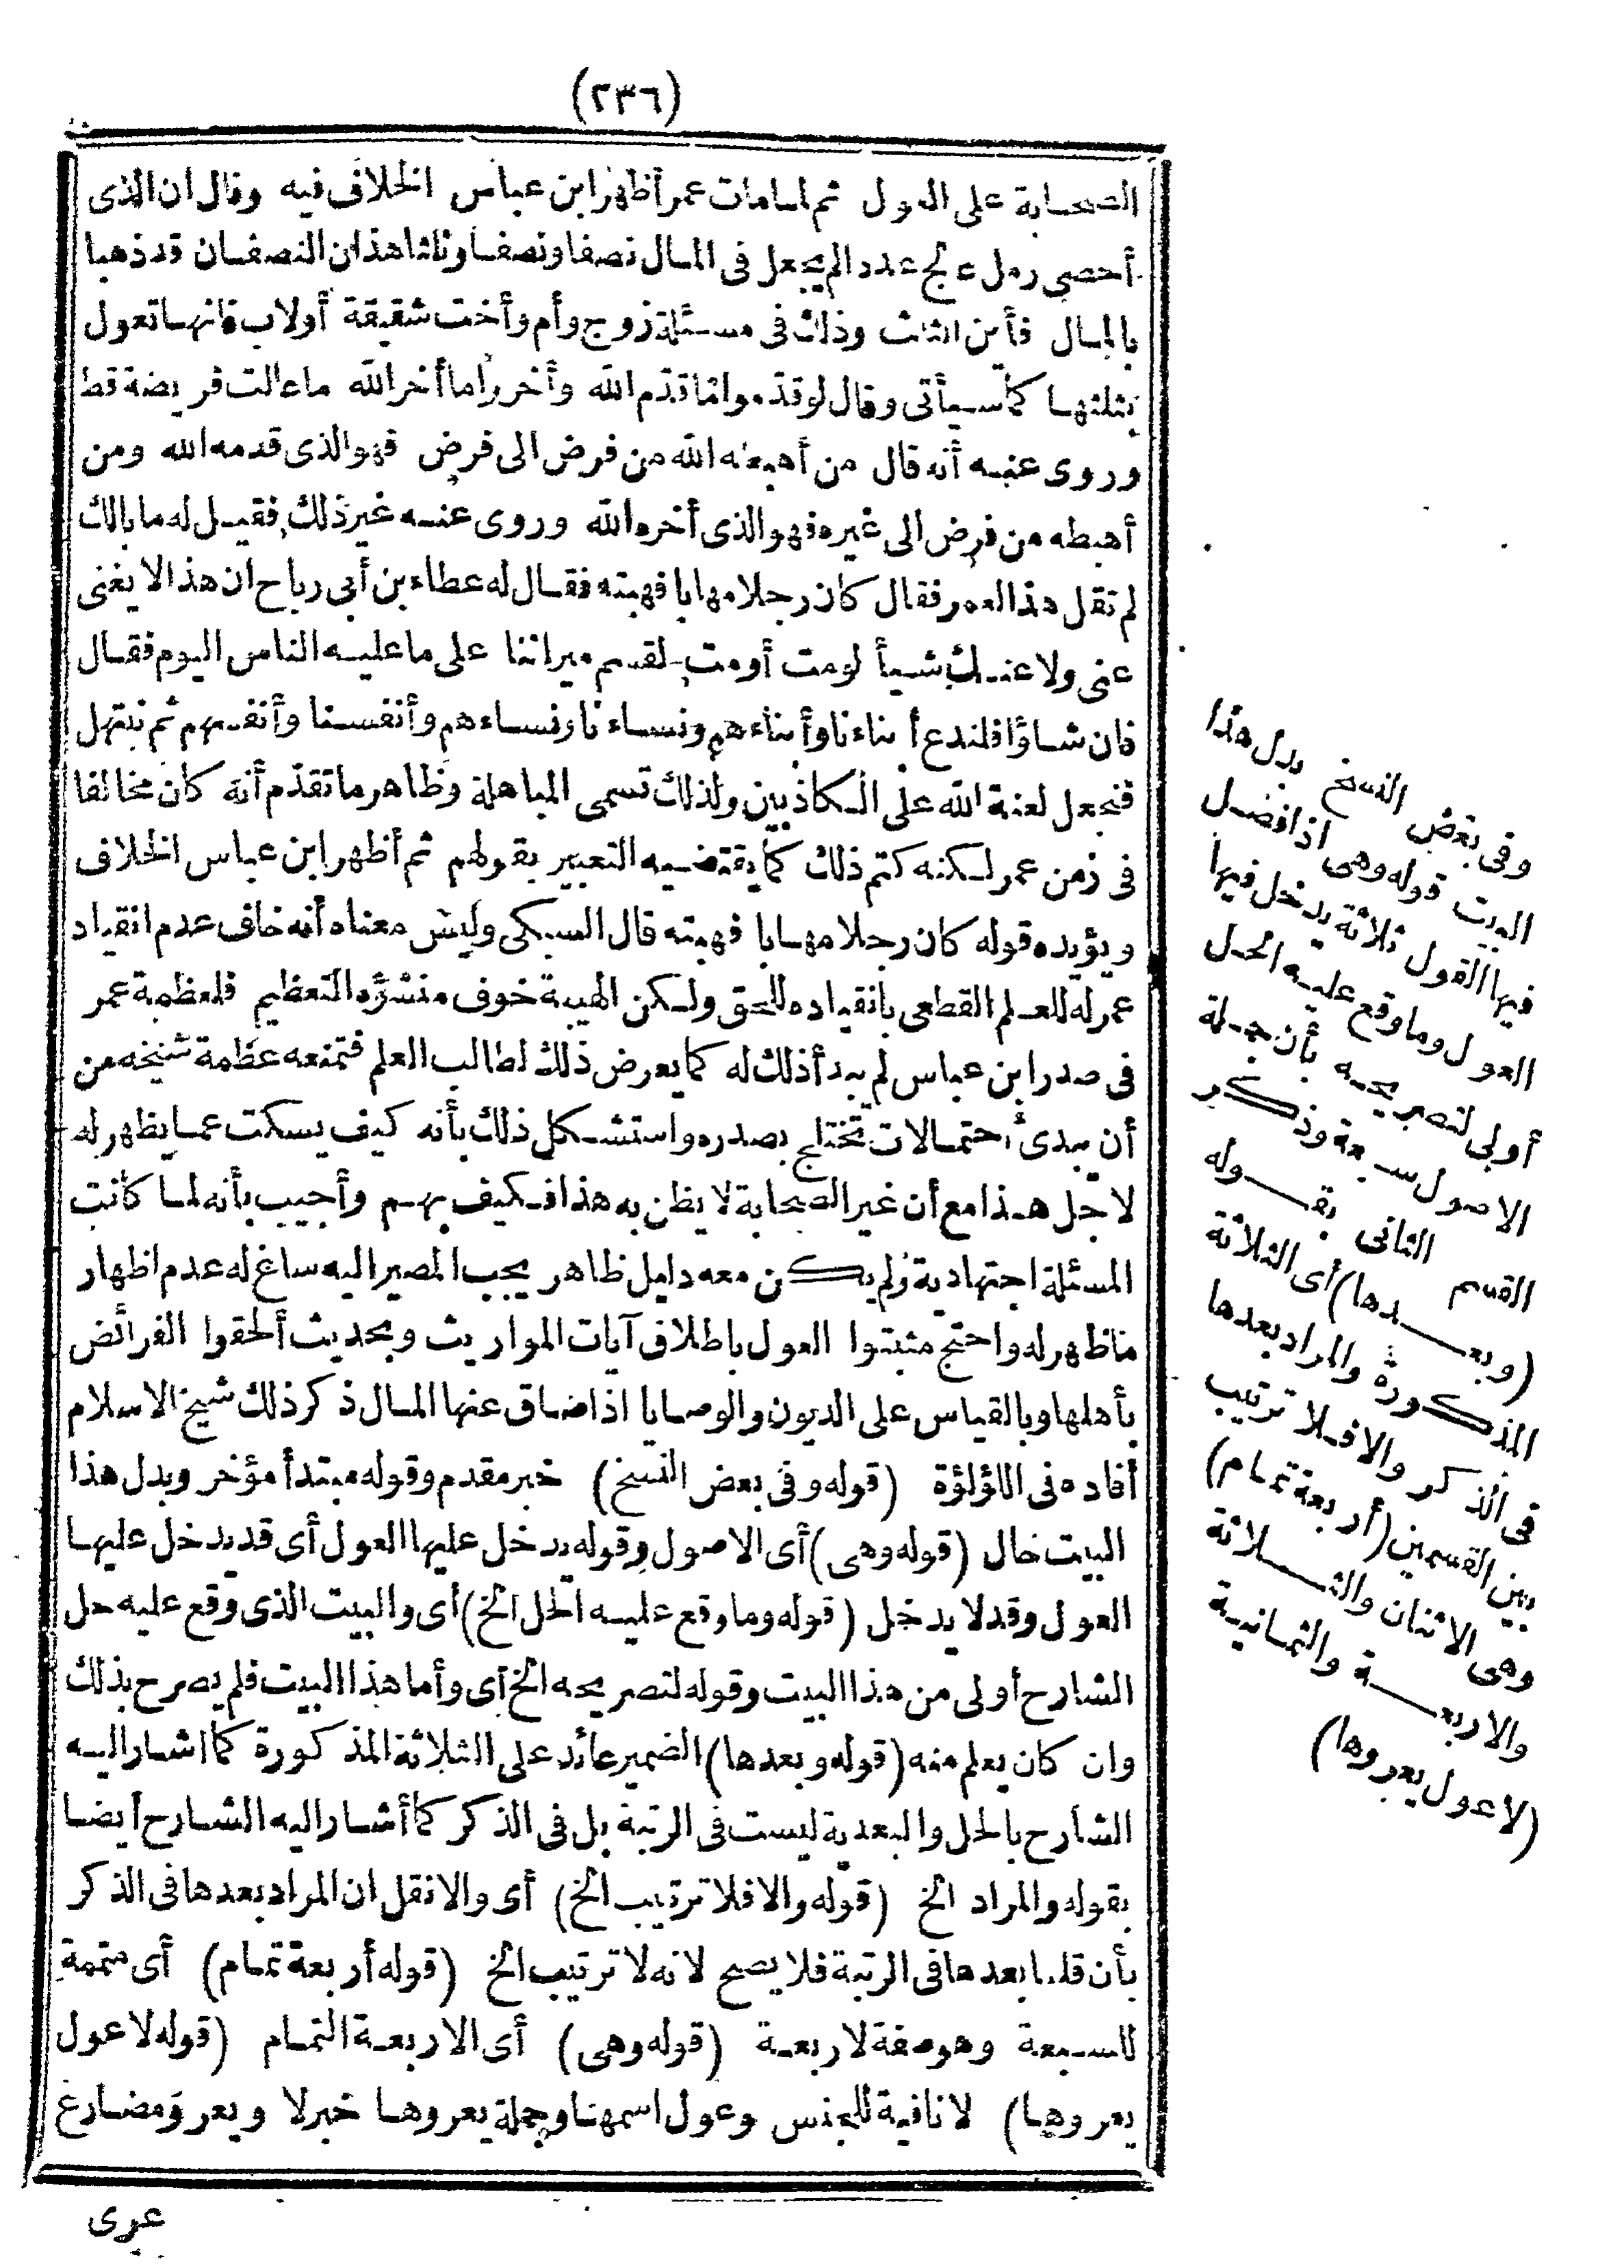 (٢٣٦)
الصحابة على العول ثم لما مات عمر أظهر ابن عباس الخلاف فيه وقال ان الذى
أحصى رمل عالج عددا لم يجعل فى المال نصفا ونصفا وثلثا هذان النصفان قد ذهبا
بالمال فأين الثلث وذلك فى مسئلة زوج وأم وأخت شقيقة أولاب فانها تعول
بثلثها كما سيأتى وقال لو قدموا ما قدم الله وأخروا ما أخر الله ما عالت فريضة قط
وروى عنه أنه قال من أهبطه الله من فرض الى فرض فهو الذى قدمه الله ومن
أهبطه من فرض الى غيره فهو الذى أخره الله وروى عنه غير ذلك فقيل له ما بالك
لم تقل هذا لعمر فقال كان رجلا مهابا فهبته فقال له عطاء بن أبى رباح ان هذا لا يغنى
عنى ولا عنك شيأ لومت أومت لقسم ميراثنا على ما عليه الناس اليوم فقال
فان شاؤا فلندع أبناءنا وأبناءهم ونساءنا ونساءهم وأنفسنا وأنفسهم ثم نبتهل
فنجعل لعنة الله على الكاذبين ولذلك تسمى المباهلة وظاهر ما تقدم أنه كان مخالفا
فى زمن عمر لكنه كتم ذلك كما يقتضيه التعبير بقولهم ثم أظهر ابن عباس الخلاف
ويؤيده قوله كان رجلا مهابا فهبته قال السبكى وليس معناه أنه خاف عدم انقياد
عمر له للعلم القطعى بانقياده للحق ولكن الهيبة خوف منشؤه التعظيم فلعظمة عمر
فى صدر ابن عباس لم يبد أذلك له كما يعرض ذلك لطالب العلم فتمنعه عظمة شيخه من
أن يبدئ احتمالات تختلج بصدره واستشكل ذلك بأنه كيف يسكت عما يظهر له
لاجل هذا مع أن غير الصحابة لا يظن به هذا فكيف بهم وأجيب بأنه لما كانت
المسئلة اجتهادية ولم يكن معه دليل ظاهر يجب المصير اليه ساغ له عدم اظهار
ما ظهر له واحتج مثبتوا العول باطلاق آيات المواريث وبحديث ألحقوا الفرائض
بأهلها وبالقياس على الديون والوصايا اذا ضاق عنها المال ذكر ذلك شيخ الاسلام
أفاده فى اللؤلؤة (قوله وفى بعض النسخ) خبر مقدم وقوله مبتدأ مؤخر وبدل هذا
البيت حال (قوله وهى) أى الاصول وقوله يدخل عليها العول أى قد يدخل عليها
العول وقد لا يدخل (قوله وما وقع عليه الحل الخ) أى والبيت الذى وقع عليه حل
الشارح أولى من هذا البيت وقوله لتصريحه الخ أى وأما هذا البيت فلم يصرح بذلك
وان كان يعلم منه (قوله وبعدها) الضمير عائد على الثلاثة المذكورة كما اشار اليه
الشارح بالحل والبعدية ليست فى الرتبة بل فى الذكر كما أشار اليه الشارح أيضا
بقوله والمراد الخ (قوله والا فلا ترتيب الخ) أى والا نقل ان المراد بعدها فى الذكر
بأن قلنا بعدها فى الرتبة فلا يصح لانه لا ترتيب الخ (قوله أربعة تمام) أى متممة
للسبعة وهو صفة لاربعة (قوله وهى) أى الاربعة التمام (قوله لا عول
يعروها) لا نافية للجنس وعول اسمها وجملة يعروها خبر لا ويعرو مضارع
عرى
وفى بعض النسخ بدل هذا
البيت قوله وهى اذا فصل
فيها القول ثلاثة يدخل فيها
العول وما وقع عليه الحل
أولى لتصريحه بأن جملة
الاصول سبعة وذكر
القسم الثانى بقوله
(وبعدها) أى الثلاثة
المذكورة والمراد بعدها
فى الذكر والا فلا ترتيب
بين القسمين (أربعة تمام)
وهى الاثنان والثلاثة
والاربعة والثمانية
(لا عول يعروها)